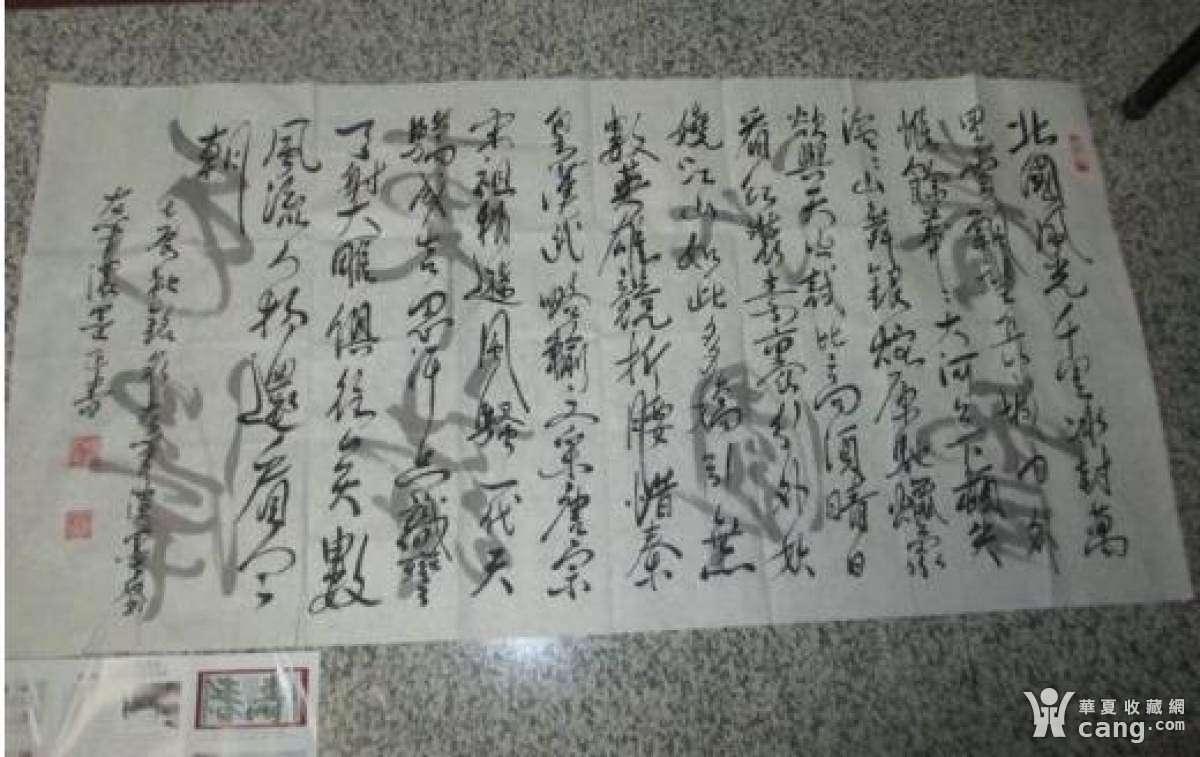 北國風光千里冰封萬
里雪飄望長城內外
惟餘莽〻大河上下頓失
滔〻山舞銀蛇原馳蠟象
欲與天公試比高須晴日
看紅裝素裹分外妖
嬈江山如此多嬌引無
數英雄競折腰惜秦
皇漢武略輸文采唐宗
宋祖稍遜風騷一代天
驕成吉思汗只識彎
弓射大雕俱往矣數
風流人物還看今
朝
華夏收藏網
cang.com